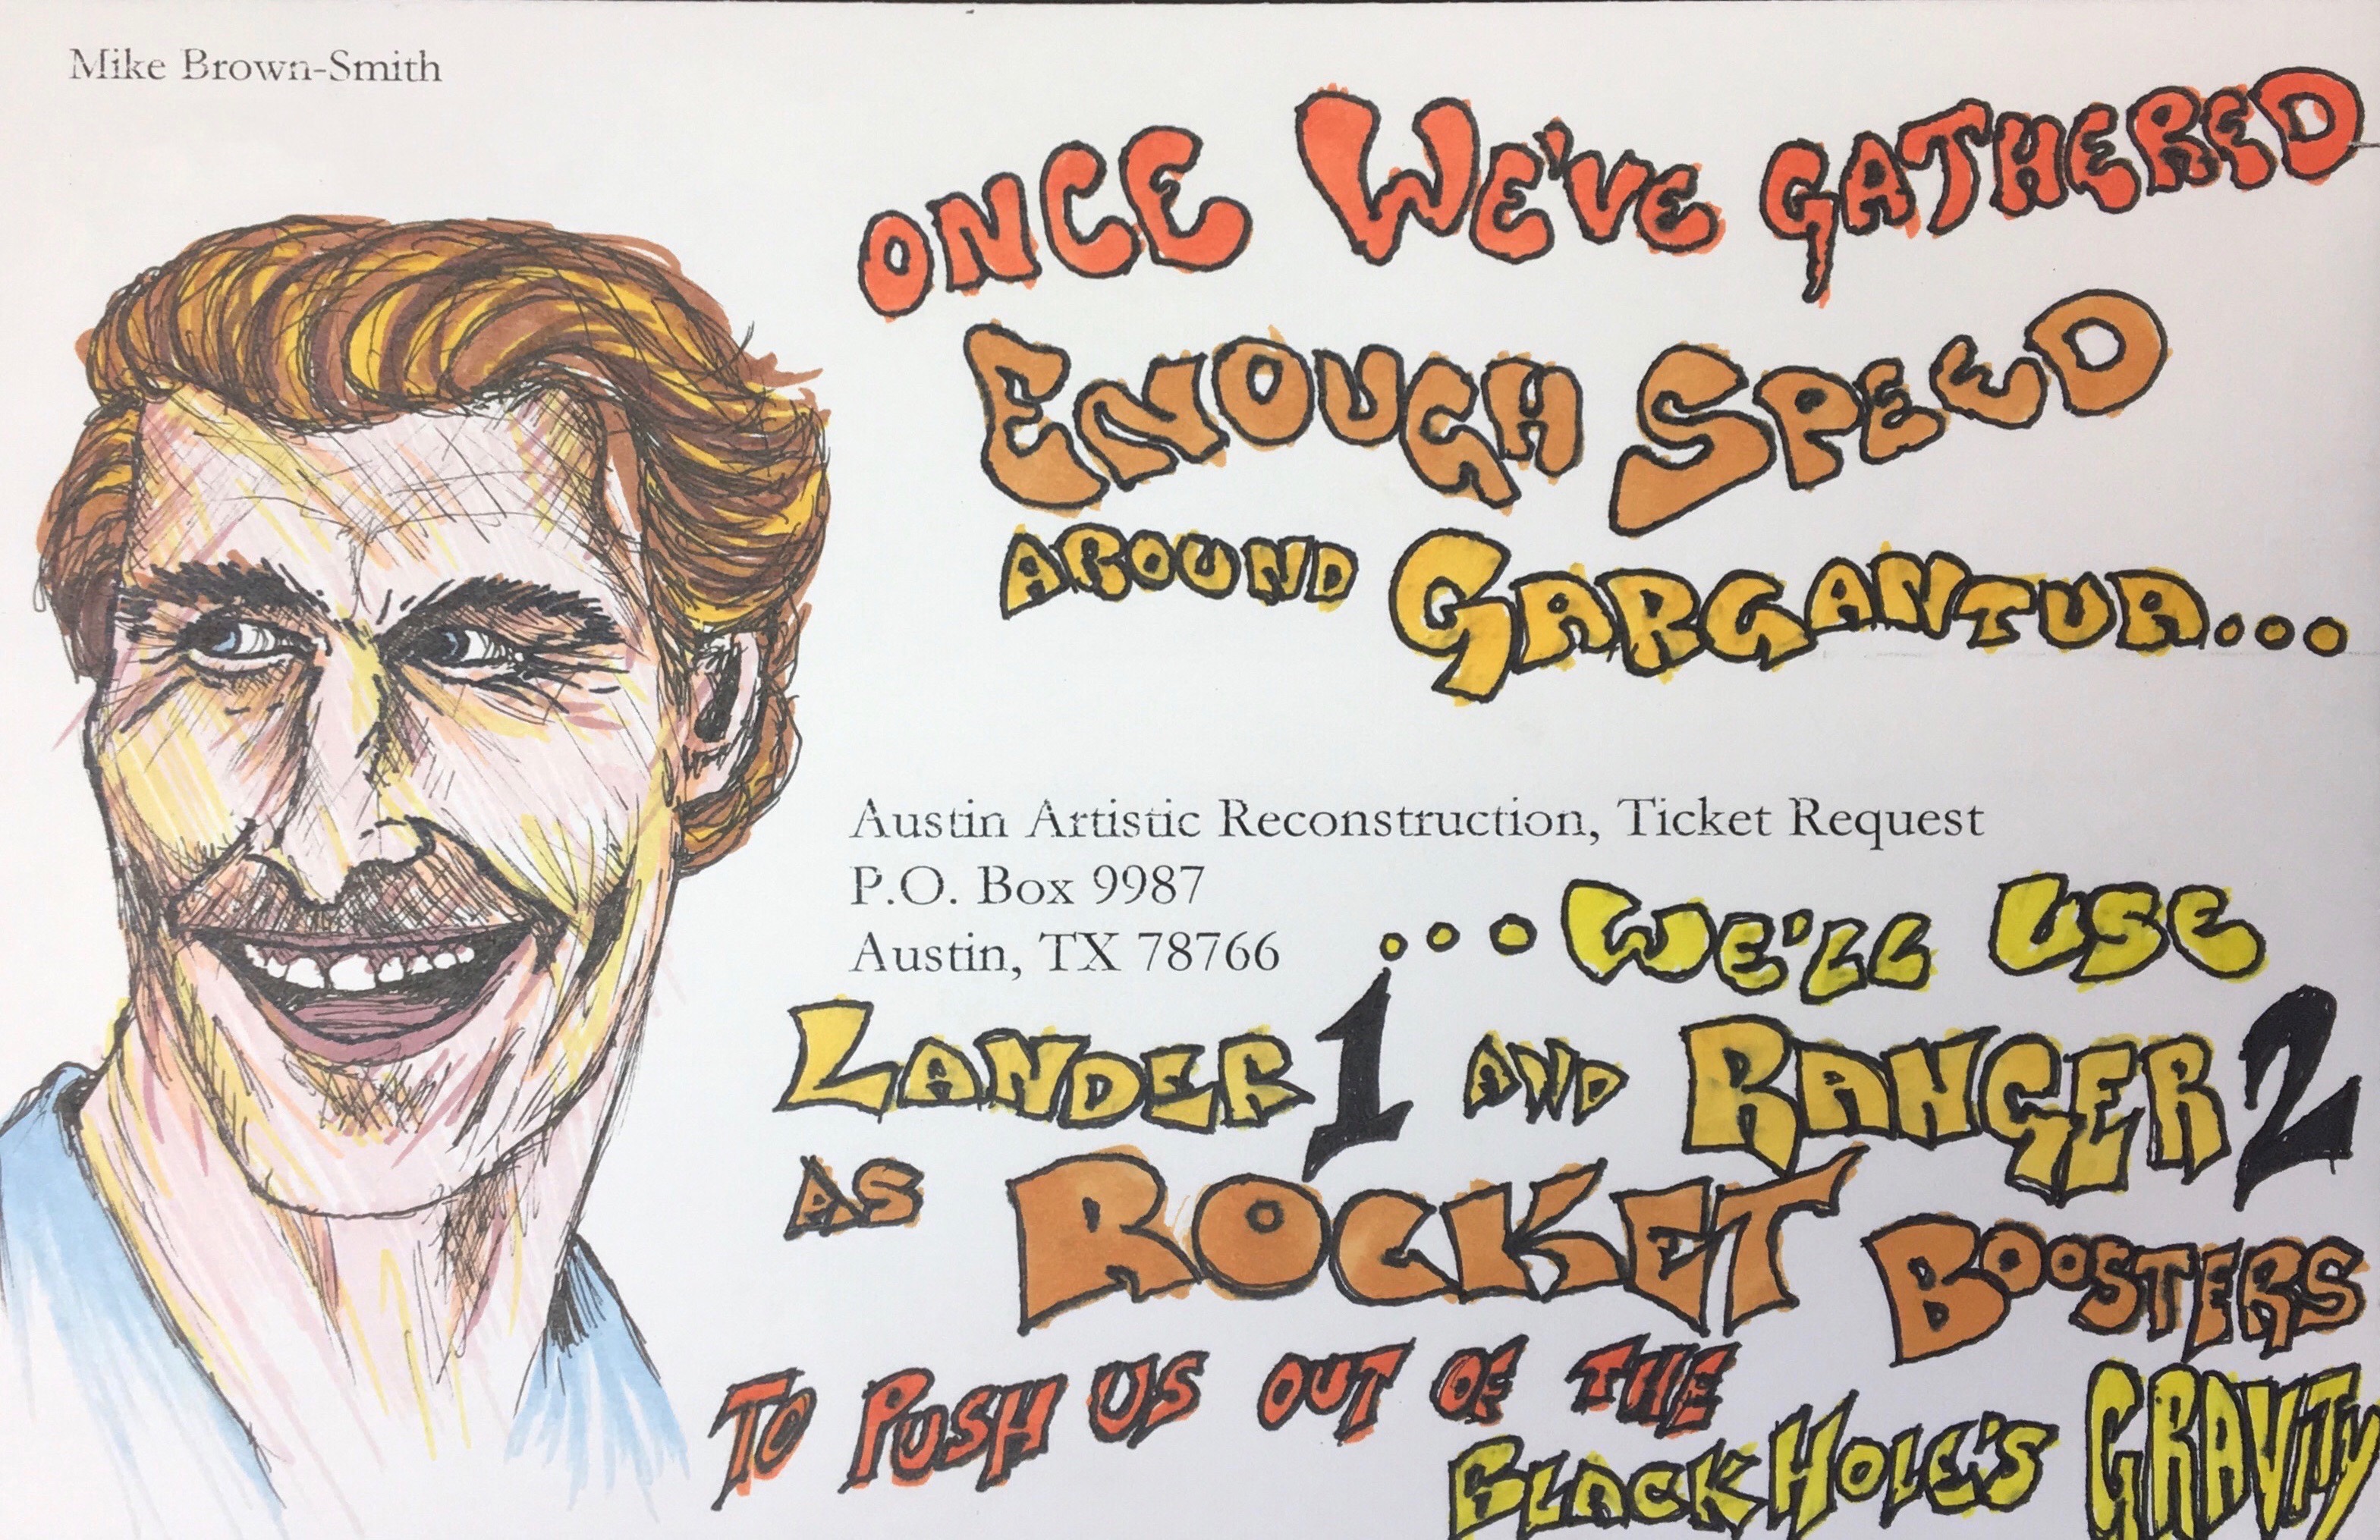 Mike Brown-Smith
ONCE WE'VE GATHERED
ENOUGH SPEED
AROUND GARGANTUA...
Austin Artistic Reconstruction, Ticket Request
P.O. Box 9987
Austin, TX 78766
...WE'LL USE
LANDER 1 AND RANGER 2
AS ROCKET BOOSTERS
TO PUSH US OUT OF THE
BLACK HOLE'S GRAVITY